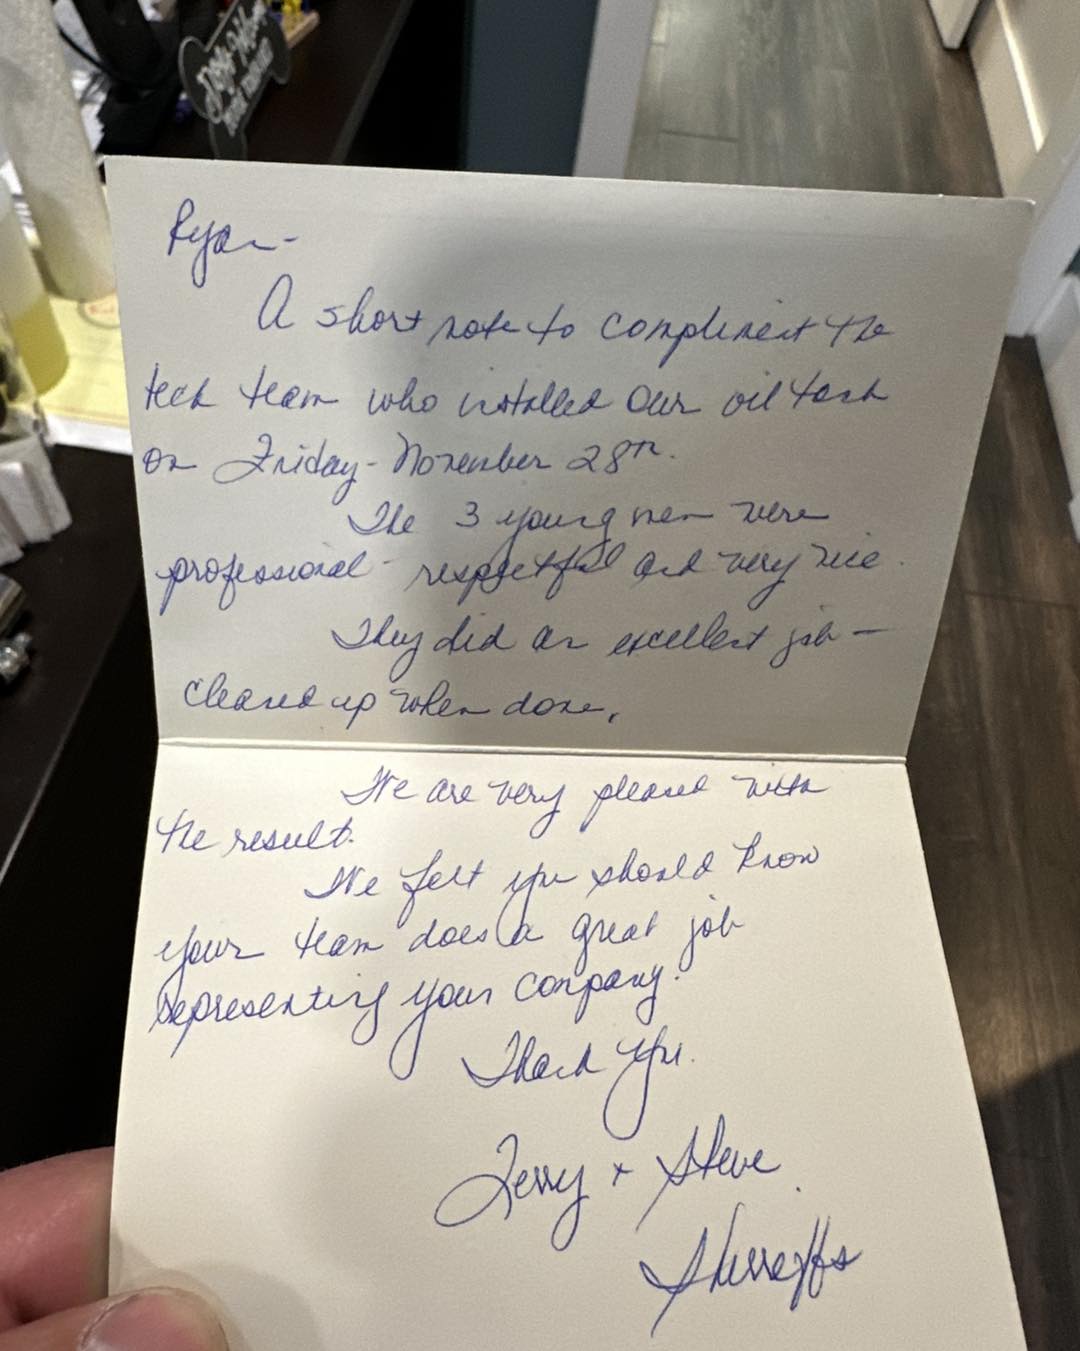 Ryan -
A short note to compliment the
tech team who installed our oil tank
on Friday - November 28th.
The 3 young men were
professional - respectful and very nice.
They did an excellent job -
cleaned up when done.
We are very pleased with
the result.
We felt you should know
your team does a great job
representing your company.
Thank you.
Terry + Steve